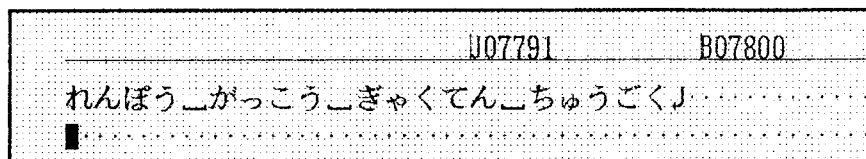 U07791 B07800
れんぽう⎵がっこう⎵ぎゃくてん⎵ちゅうごく」